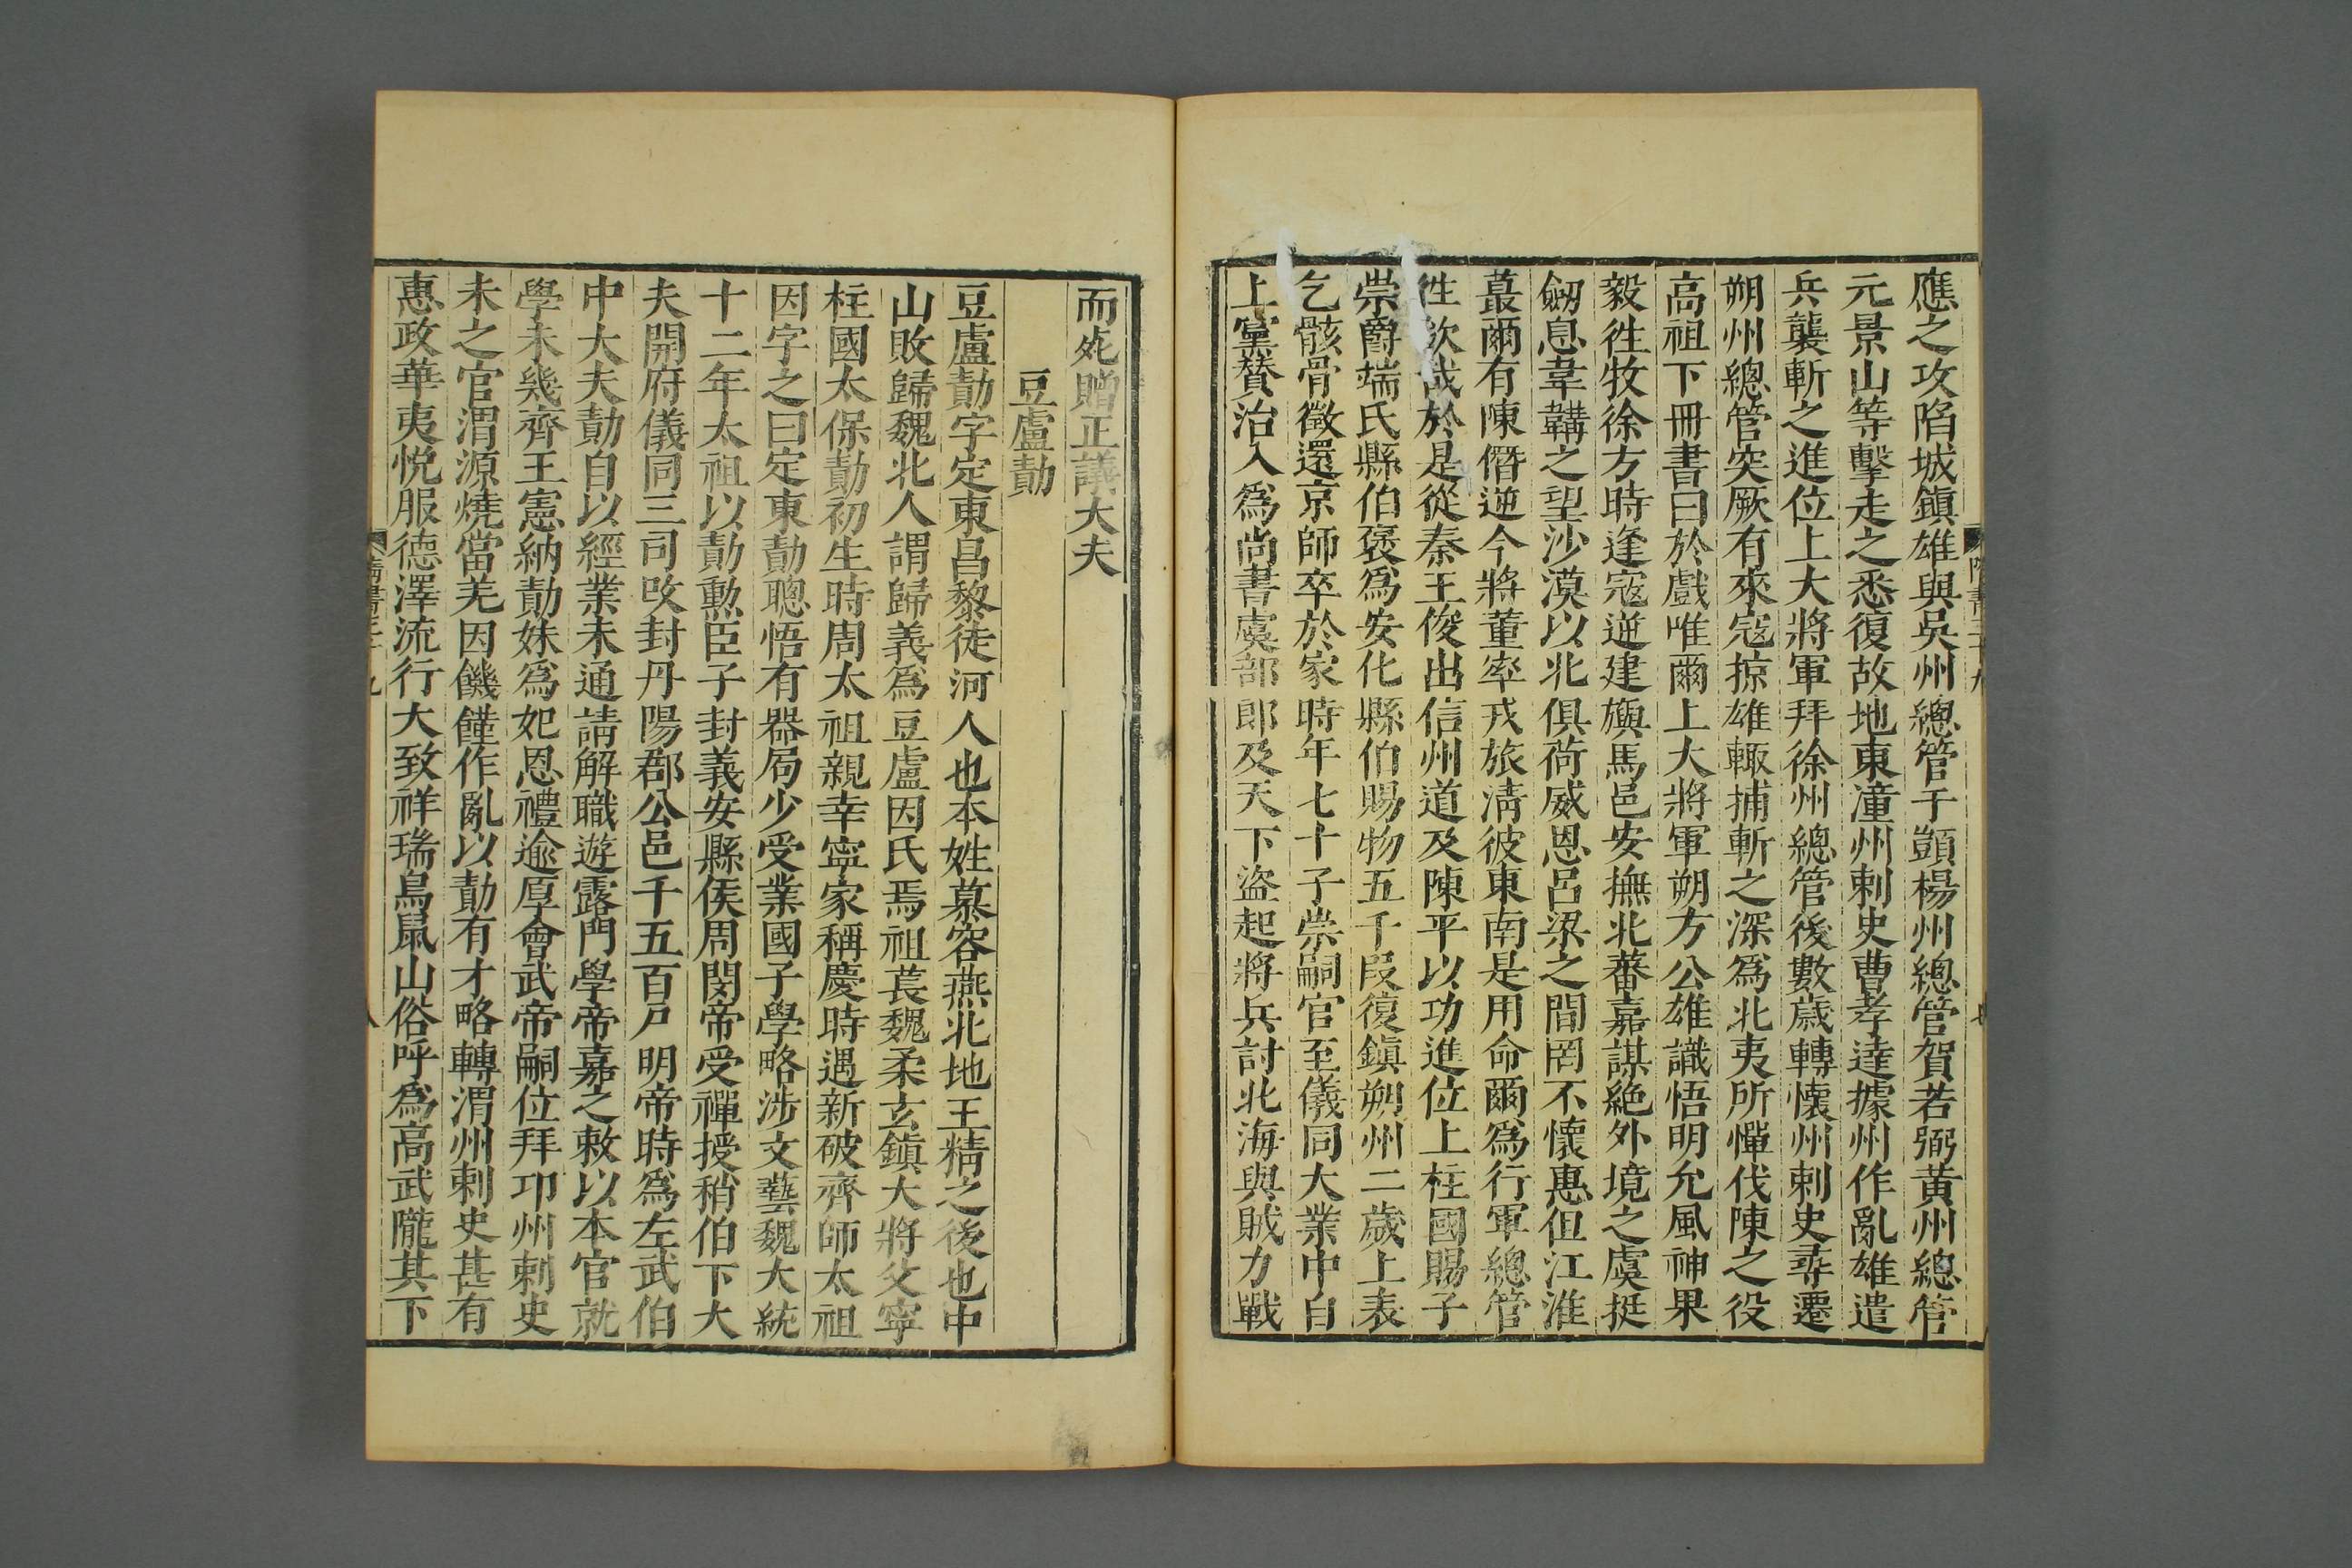 應之攻陷城鎭雄與吳州總管于顗楊州總管賀若弼黃州總管
元景山等擊走之悉復故地東潼州刺史曹孝達據州作亂雄遣
兵襲斬之進位上大將軍拜徐州總管後數歲轉懷州刺史尋遷
朔州總管突厥有來寇掠雄輙捕斬之深爲北夷所憚伐陳之役
高祖下冊書曰於戲唯爾上大將軍朔方公雄識悟明允風神果
毅徃牧徐方時逢寇逆建旟馬邑安撫北蕃嘉謀絶外境之虞挺
劒息韋韝之望沙漠以北俱荷威恩呂梁之間罔不懷惠但江淮
蕞爾有陳僭逆今將董率戎旅淸彼東南是用命爾爲行軍總管
徃欽哉於是從秦王俊出信州道及陳平以功進位上柱國賜子
崇爵端氏縣伯褒爲安化縣伯賜物五千段復鎭朔州二歲上表
乞骸骨徵還京師卒於家時年七十子崇嗣官至儀同大業中自
上黨贊治入爲尚書虞部郎及天下盜起將兵討北海與賊力戰
而死贈正議大夫
豆盧勣
豆盧勣字定東昌黎徒河人也本姓慕容燕北地王精之後也中
山敗歸魏北人謂歸義爲豆盧因氏焉祖萇魏柔玄鎭大將父寧
柱國太保勣初生時周太祖親幸寧家稱慶時遇新破齊師太祖
因字之曰定東勣聰悟有器局少受業國子學略涉文藝魏大統
十二年太祖以勣勳臣子封義安縣侯周閔帝受禪授稍伯下大
夫開府儀同三司改封丹陽郡公邑千五百戶明帝時爲左武伯
中大夫勣自以經業未通請解職遊露門學帝嘉之敕以本官就
學未幾齊王憲納勣妹爲妃恩禮逾厚會武帝嗣位拜邛州刺史
未之官渭源燒當羌因饑饉作亂以勣有才略轉渭州刺史甚有
惠政華夷悅服德澤流行大致祥瑞鳥鼠山俗呼爲高武隴其下